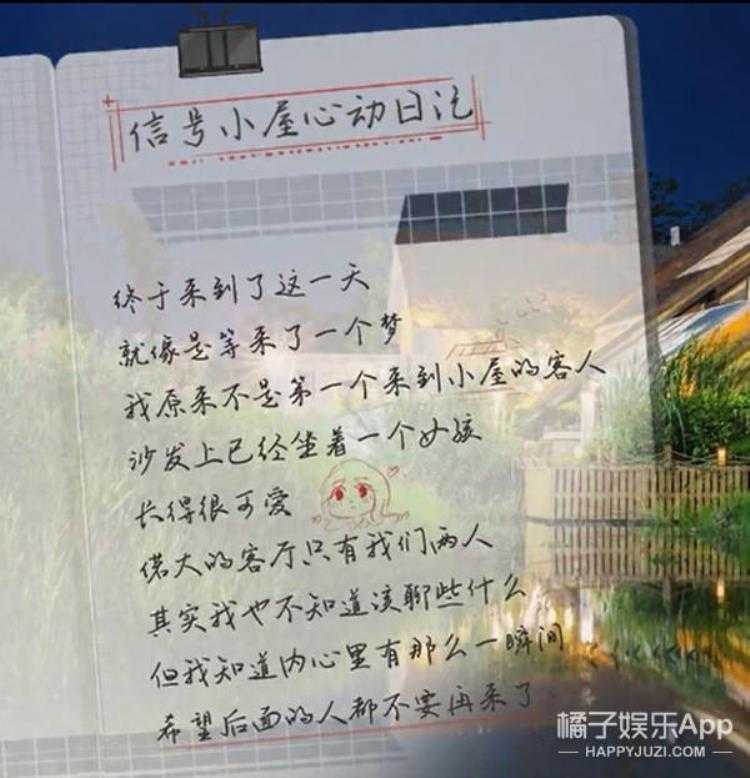 信号小屋心动日记
终于来到了这一天
就像是等来了一个梦
我原来不是第一个来到小屋的客人
沙发上已经坐着一个女孩
长得很可爱
偌大的客厅只有我们两人
其实我也不知道该聊些什么
但我知道内心里有那么一瞬间
希望后面的人都不要再来了
橘子娱乐App
HAPPYJUZI.COM